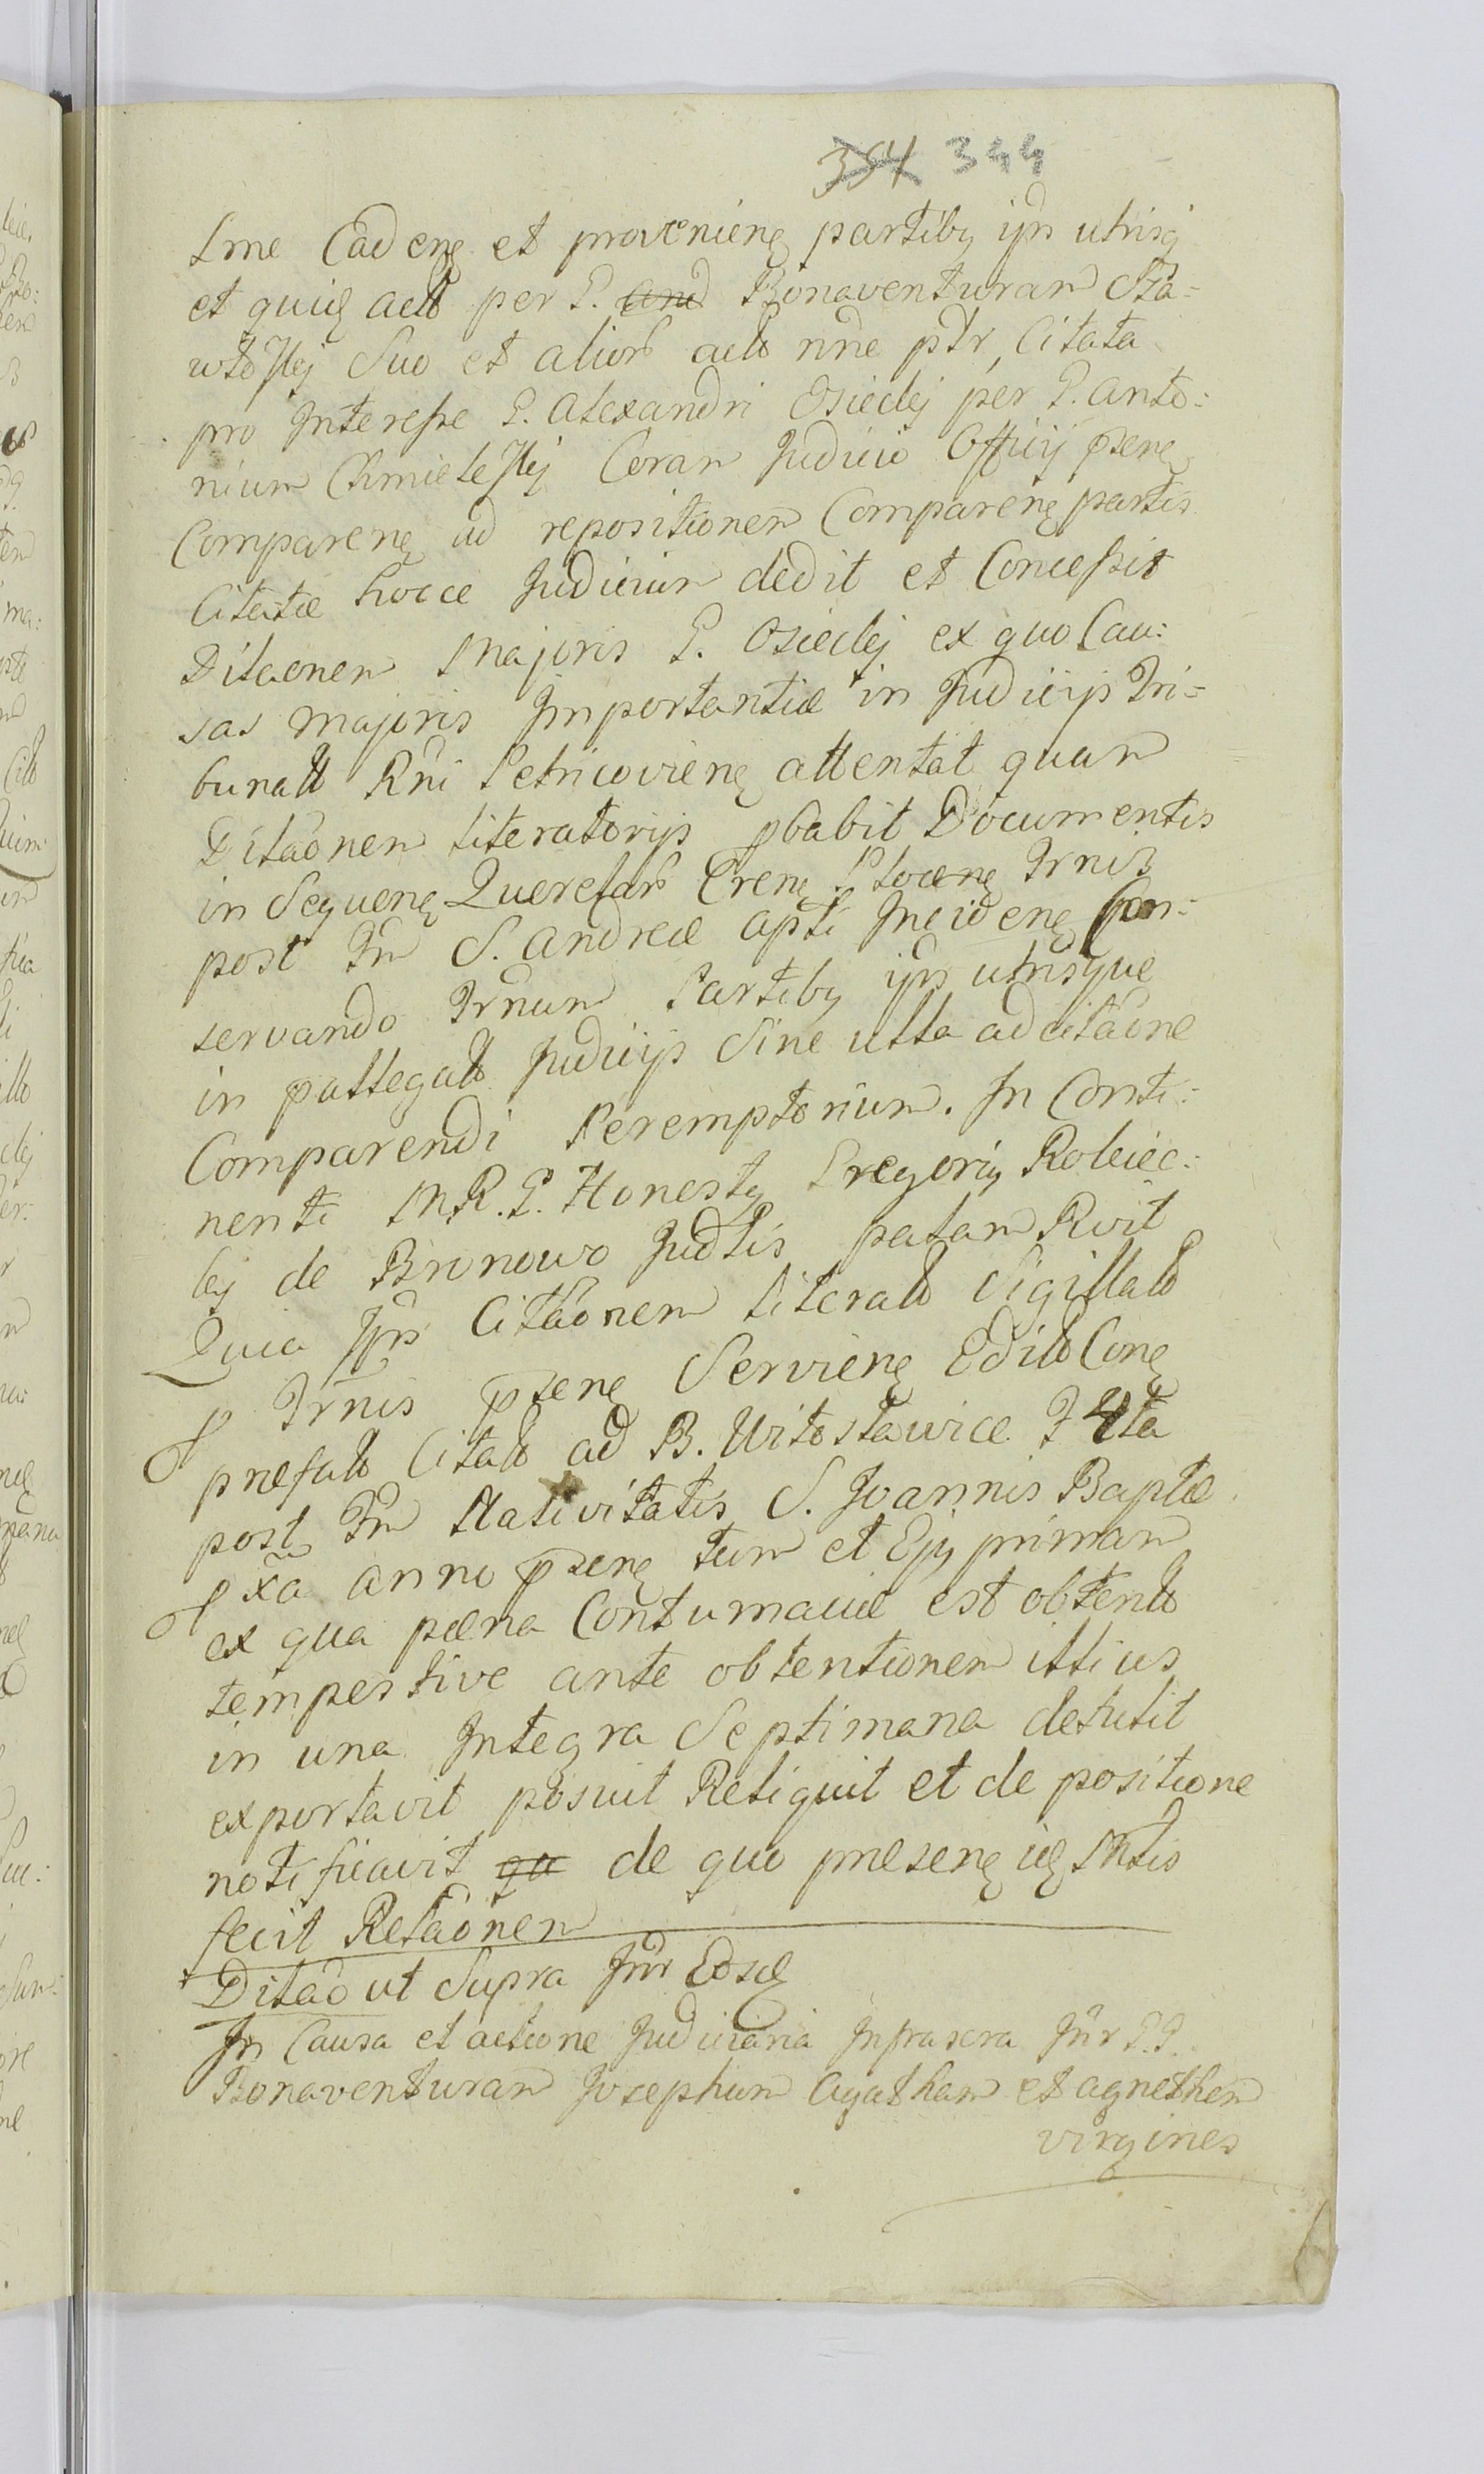 354 344
Lme Cadenę et provenienę partiby ijsd utrisq
et quidę actō per P. and Bonaventuram Sta=
wtoskj Suo et aliorō actō nne ptr, Citata
pro Interesse P. Alexandri Osieckj per P. Anto:
nium Chmieleskj Coram Judicio Officij pzenę
Comparenę ad repositionem Comparenę partis
Citatæ hocce Judicium dedit et Concessit
Dilaonem Majoris P. Osieckj ex quo Cau:
sas majoris Importantiæ in Judicijs Tri=
bunalł Rni Petricovienę attentat quam
Dilaonem literatorijs pbabit Documentis
in Sequenę Querelarō Trenę Plocenę Trnis
post Fm S. Andreæ apti Incidenę Con:
servando Trnum Partiby ijsd utrisque
in pallegatō Judicijs Sine ulla adcitaone
Comparendi Peremptorium. In Conti:
nenti MR. P. Honesty Gregoriy Robiec:
kj de Bronowo Judlis palam Rvit
Quia Ipse Citaonem literatō Sigillatō
p Trnis pzenę Servienę Editō Conę
prefatō Citatō ad B. Witosławice F 4ta
post Fm Nativitatis S. Joannis Baptæ
pxa anno pzenę tum et Ejy primam
ex qua pœna Contumaciæ est obtentō
tempestive ante obtentionem illius
in una Integra Septimana detulit
exportavit posuit Reliquit et de positione
notificavit qu de quo præsenę idę Mtis
fecit Relaonem
Dilao ut Supra Inr Eosdę
In Causa et actione Judiciaria Infrascra Inr P.P.
Bonaventuram Josephum Agatham et agnethem
virgines